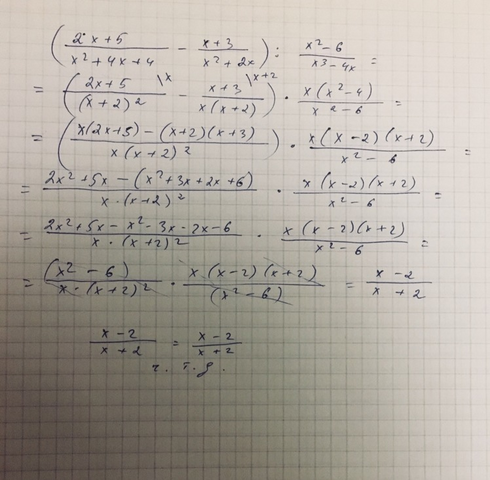 ((2x+5)/(x²+4x+4) - (x+3)/(x²+2x)) : (x²-6)/(x³-4x) =
= ((2x+5)/(x+2)² \x - (x+3)/(x(x+2)) \x+2) · (x(x²-4))/(x²-6) =
= ((x(2x+5) - (x+2)(x+3))/(x(x+2)²)) · (x(x-2)(x+2))/(x²-6) =
= (2x²+5x-(x²+3x+2x+6))/(x·(x+2)²) · (x(x-2)(x+2))/(x²-6) =
= (2x²+5x-x²-3x-2x-6)/(x·(x+2)²) · (x(x-2)(x+2))/(x²-6) =
= (x²-6)/(x·(x+2)²) · (x·(x-2)(x+2))/(x²-6) = (x-2)/(x+2)
(x-2)/(x+2) = (x-2)/(x+2)
ч. т. д.